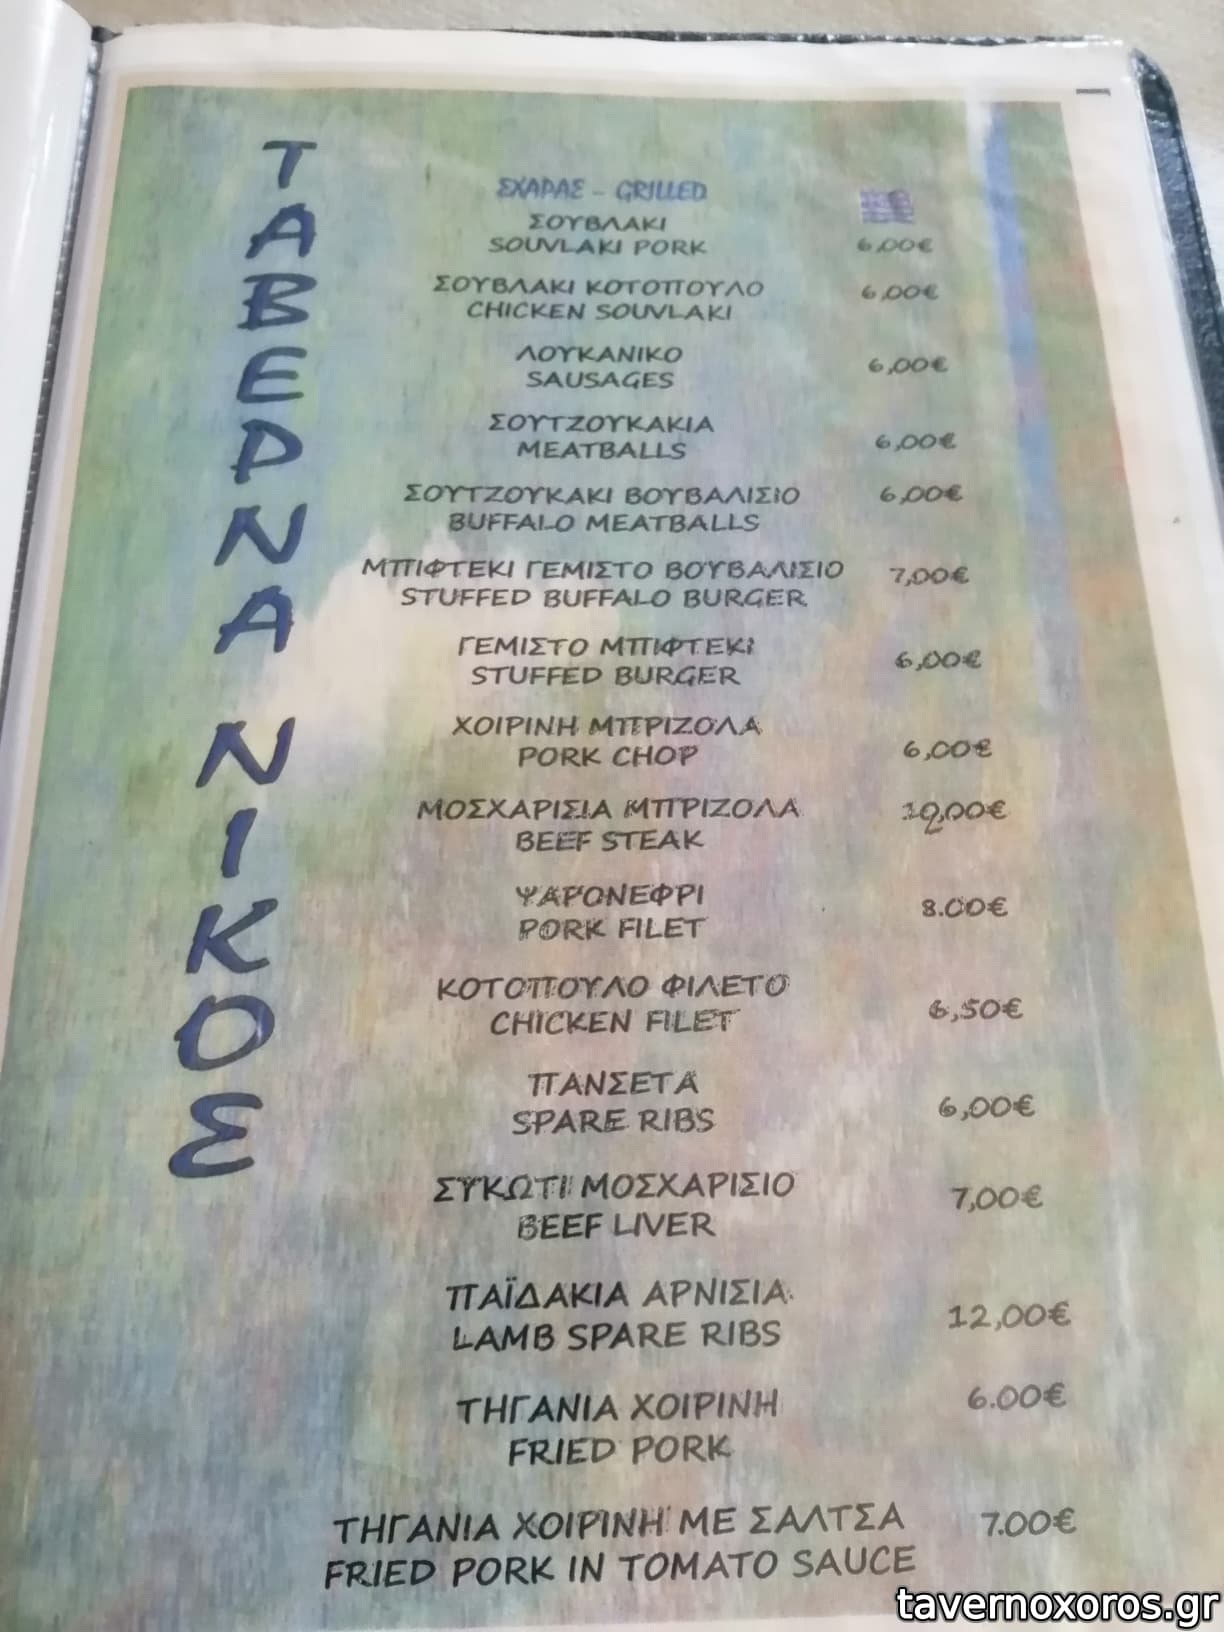 ΤΑΒΕΡΝΑ ΝΙΚΟΣ
ΣΧΑΡΑΣ - GRILLED
ΣΟΥΒΛΑΚΙ
SOUVLAKI PORK 6,00€
ΣΟΥΒΛΑΚΙ ΚΟΤΟΠΟΥΛΟ 6,00€
CHICKEN SOUVLAKI
ΛΟΥΚΑΝΙΚΟ 6,00€
SAUSAGES
ΣΟΥΤΖΟΥΚΑΚΙΑ 6,00€
MEATBALLS
ΣΟΥΤΖΟΥΚΑΚΙ ΒΟΥΒΑΛΙΣΙΟ 6,00€
BUFFALO MEATBALLS
ΜΠΙΦΤΕΚΙ ΓΕΜΙΣΤΟ ΒΟΥΒΑΛΙΣΙΟ 7,00€
STUFFED BUFFALO BURGER
ΓΕΜΙΣΤΟ ΜΠΙΦΤΕΚΙ 6,00€
STUFFED BURGER
ΧΟΙΡΙΝΗ ΜΠΡΙΖΟΛΑ
PORK CHOP 6,00€
ΜΟΣΧΑΡΙΣΙΑ ΜΠΡΙΖΟΛΑ
BEEF STEAK
ΨΑΡΟΝΕΦΡΙ 8.00€
PORK FILET
ΚΟΤΟΠΟΥΛΟ ΦΙΛΕΤΟ 6,50€
CHICKEN FILET
ΠΑΝΣΕΤΑ 6,00€
SPARE RIBS
ΣΥΚΩΤΙ ΜΟΣΧΑΡΙΣΙΟ 7,00€
BEEF LIVER
ΠΑΪΔΑΚΙΑ ΑΡΝΙΣΙΑ 12,00€
LAMB SPARE RIBS
ΤΗΓΑΝΙΑ ΧΟΙΡΙΝΗ 6.00€
FRIED PORK
ΤΗΓΑΝΙΑ ΧΟΙΡΙΝΗ ΜΕ ΣΑΛΤΣΑ 7.00€
FRIED PORK IN TOMATO SAUCE
tavernoxoros.gr